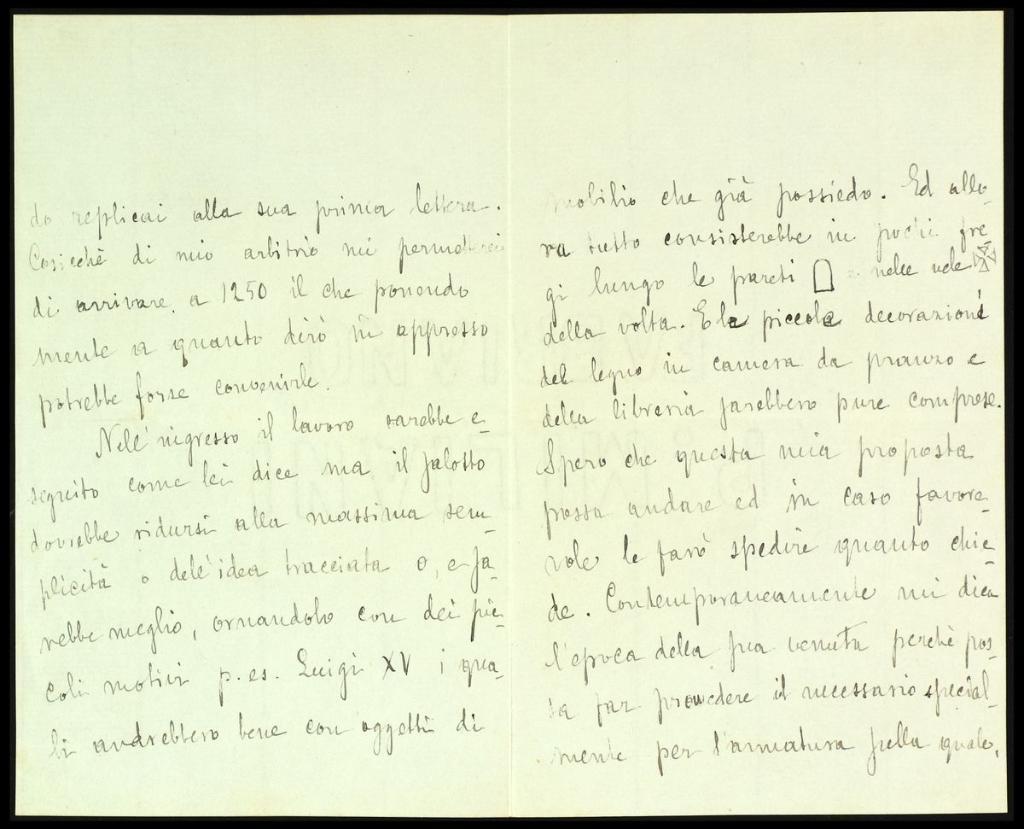 do replicai alla sua prima lettera.
Cosicchè di mio arbitrio mi permetterei
di arrivare a 1250 il che ponendo
mente a quanto dirò in appresso
potrebbe forse convenirle.
Nell'ingresso il lavoro sarebbe e-
seguito come lei dice ma il salotto
dovrebbe ridursi alla massima sem-
plicità o dell'idea tracciata o, e sa-
rebbe meglio, ornandolo con dei pic-
coli motivi p. es. Luigi XV i qua-
li andrebbero bene con oggetti di
mobilio che già possiedo. Ed allo-
ra tutto consisterebbe in pochi fre-
gi lungo le pareti e nelle vele
della volta. E la piccola decorazione
del legno in camera da pranzo e
della libreria sarebbero pure comprese.
Spero che questa mia proposta
possa andare ed in caso favore-
vole le farò spedire quanto chie-
de. Contemporaneamente mi dica
l'epoca della sua venuta perchè pos-
sa far provvedere il necessario special-
mente per l'armatura sulla quale,